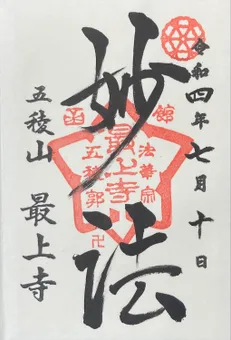 令和四年七月十日
妙法
五稜山 最上寺
函館
法華宗
最上寺
五稜郭
卍